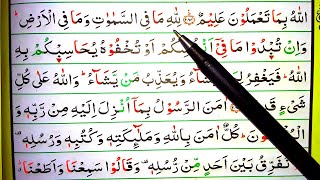 اللّٰهُ بِمَا تَعْمَلُوْنَ عَلِيْمٌ ۝ لِلّٰهِ مَا فِى السَّمٰوٰتِ وَمَا فِى الْاَرْضِ ؕ
وَاِنْ تُبْدُوْا مَا فِىْۤ اَنْفُسِكُمْ اَوْ تُخْفُوْهُ يُحَاسِبْكُمْ بِهِ
اللّٰهُ ؕ فَيَغْفِرُ لِمَنْ يَّشَآءُ وَيُعَذِّبُ مَنْ يَّشَآءُ ؕ وَاللّٰهُ عَلٰى كُلِّ
شَىْءٍ قَدِيْرٌ ۝ اٰمَنَ الرَّسُوْلُ بِمَاۤ اُنْزِلَ اِلَيْهِ مِنْ رَّبِّهٖ وَ
الْمُؤْمِنُوْنَ ؕ كُلٌّ اٰمَنَ بِاللّٰهِ وَمَلٰٓئِكَتِهٖ وَكُتُبِهٖ وَرُسُلِهٖ ۟
نُفَرِّقُ بَيْنَ اَحَدٍ مِّنْ رُّسُلِهٖ ۟ وَقَالُوْا سَمِعْنَا وَاَطَعْنَا